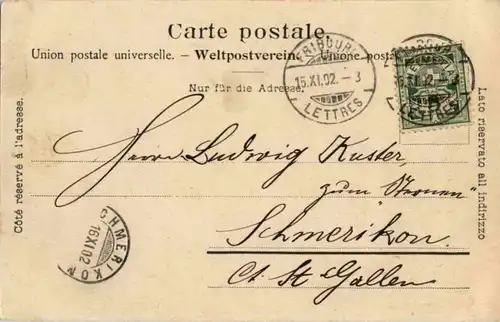 Carte postale.
Union postale universelle. – Weltpostverein. – Unione posta
Nur für die Adresse.
FRIBOURG
15.XI.02.–3
LETTRES
LETTRES
Côté réservé à l'adresse.
Lato riservato all indirizzo
Herrn Ludwig Kuster,
zum
Schmerikon.
Ct. St. Gallen
SCHMERIKON
16.XI.02